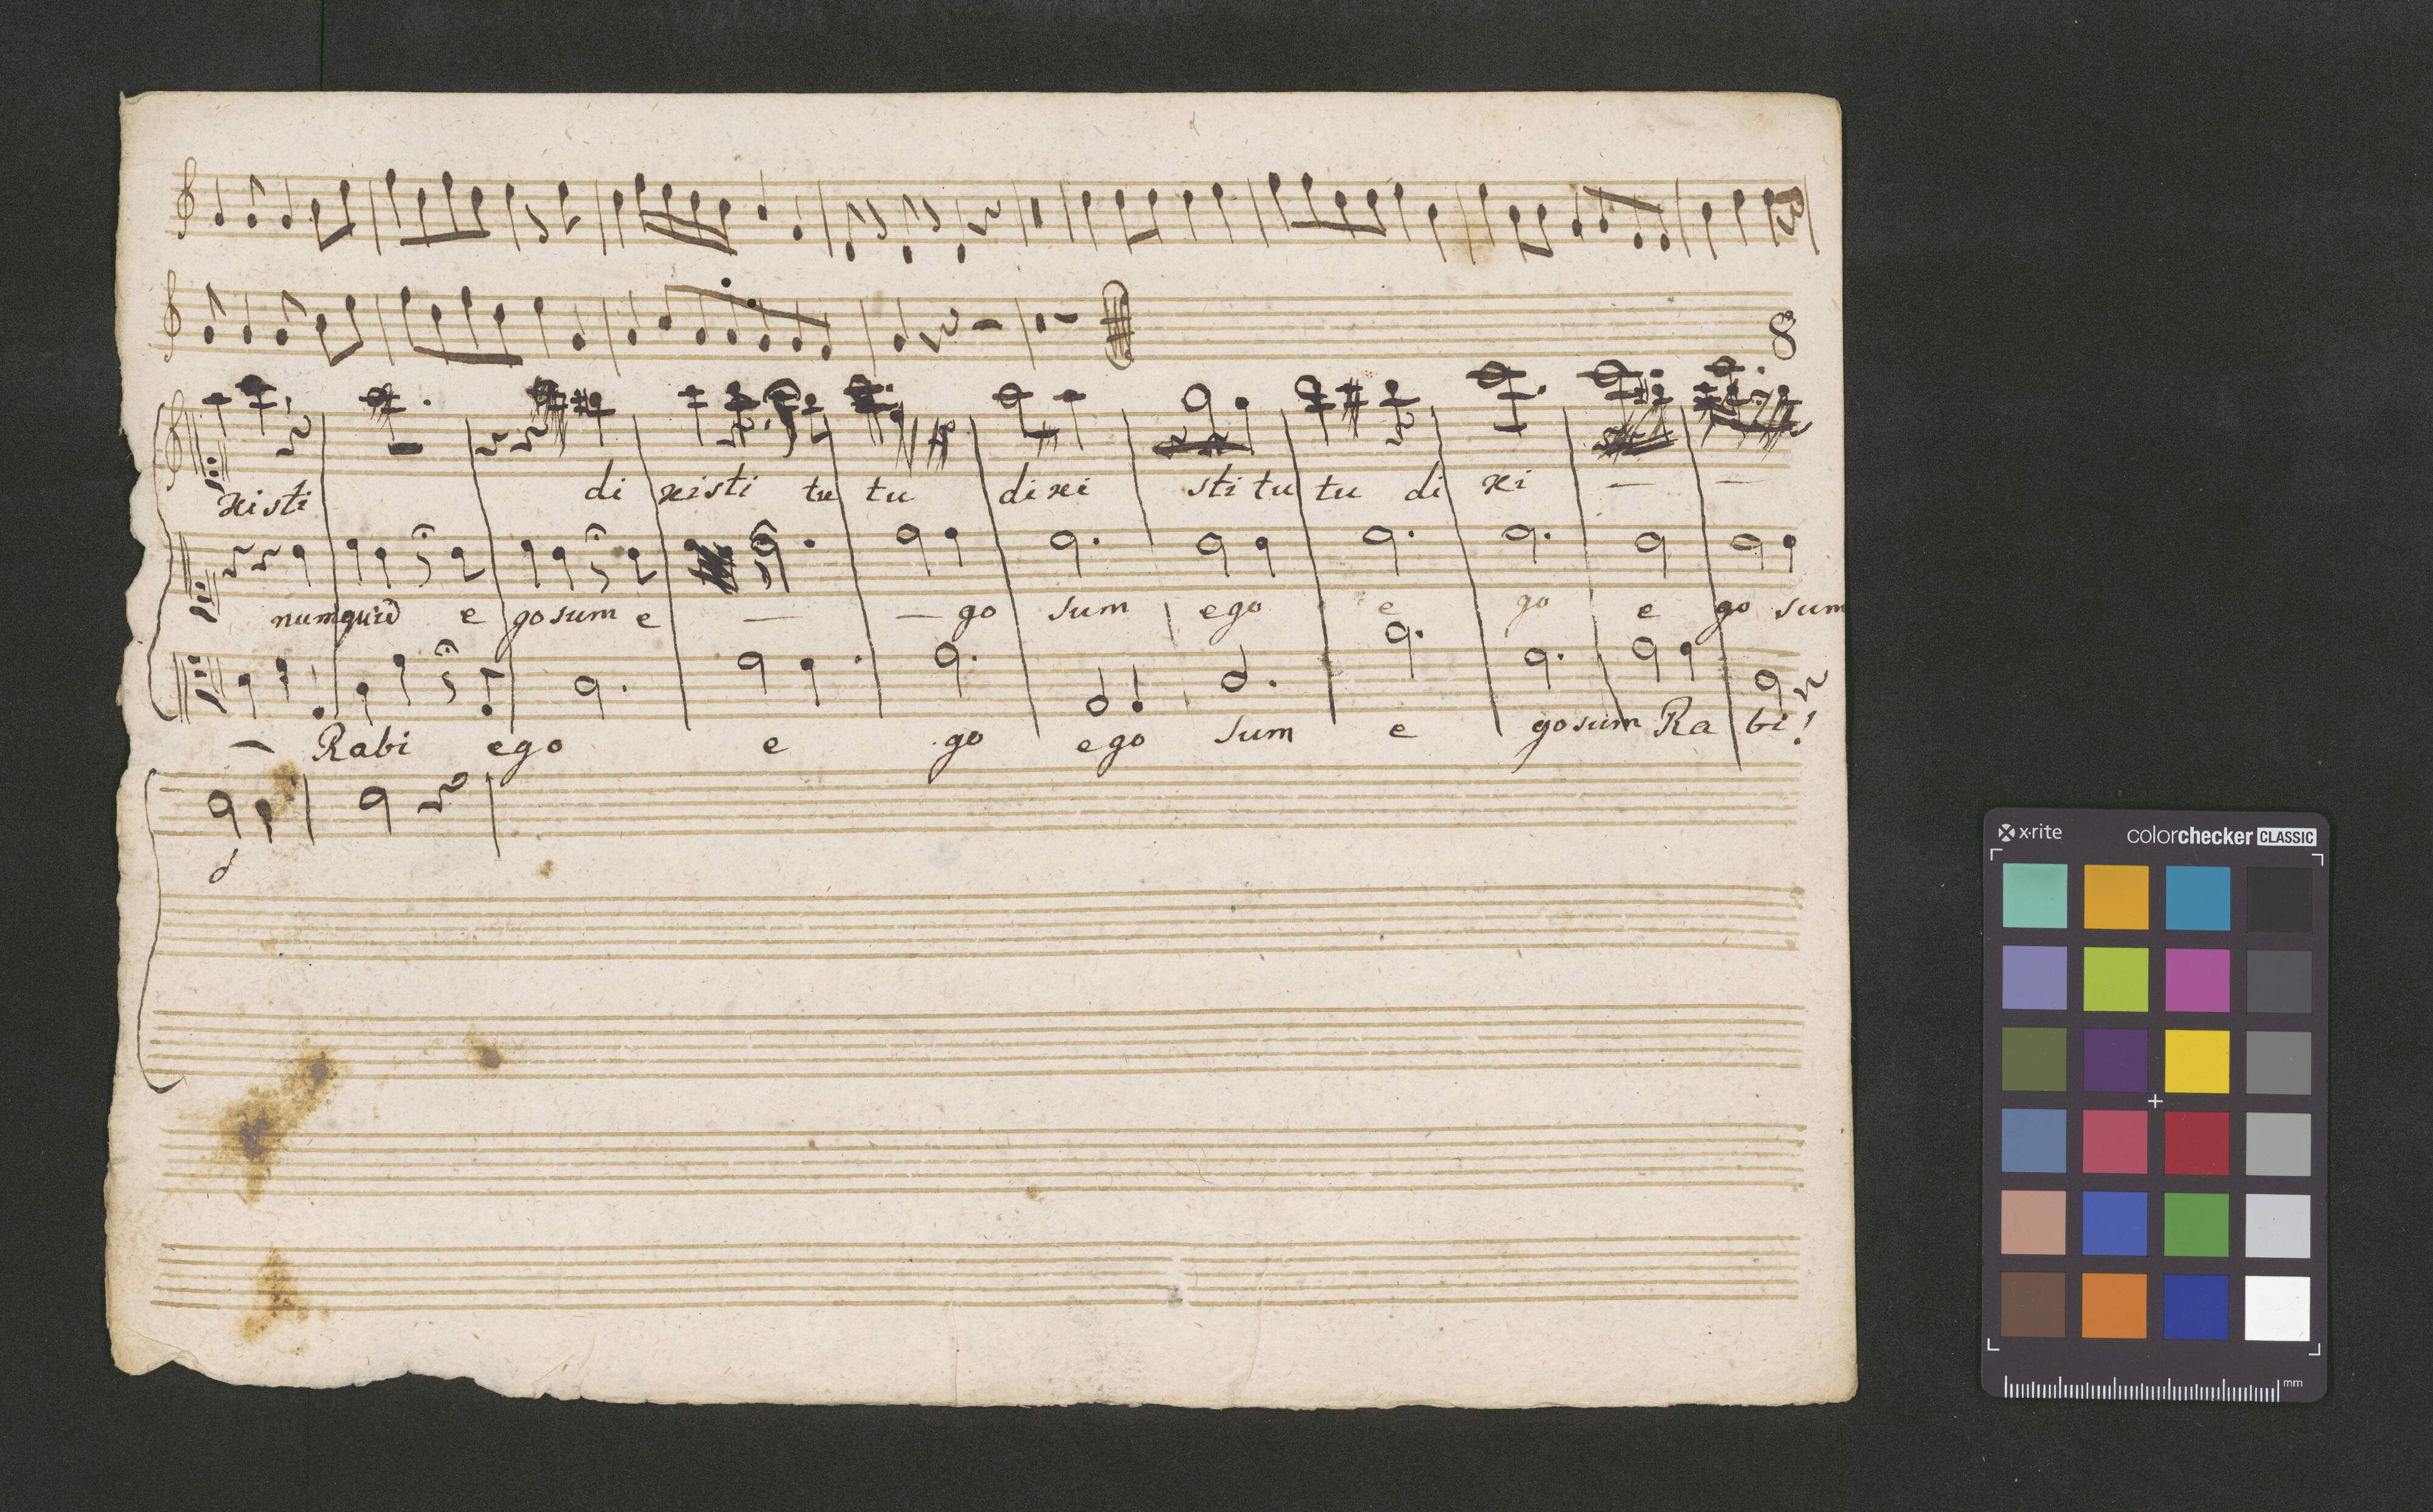 8
xisti di xisti tu tu dixi sti tu tu di xi — —
numquid e go sum e — — go sum ego e go e go sum
— Rabi ego e go ego sum e go sum Ra bi!
d
x·rite colorchecker CLASSIC
mm